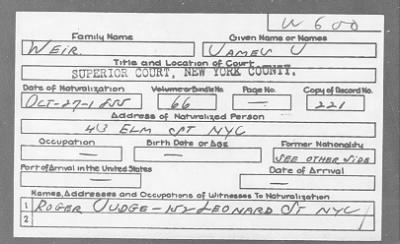 W 600
Family Name Given Name or Names
WEIR. JAMES J
Title and Location of Court
SUPERIOR COURT, NEW YORK COUNTY.
Date of Naturalization Volume or Bundle No. Page No. Copy of Record No.
OCT-27-1855 66 — 221
Address of Naturalized Person
43 ELM ST NYC
Occupation Birth Date or Age Former Nationality
— — SEE OTHER SIDE
Port of Arrival in the United States Date of Arrival
— —
Names, Addresses and Occupations of Witnesses To Naturalization
1 ROGER JUDGE - 152 LEONARD ST NYC
2